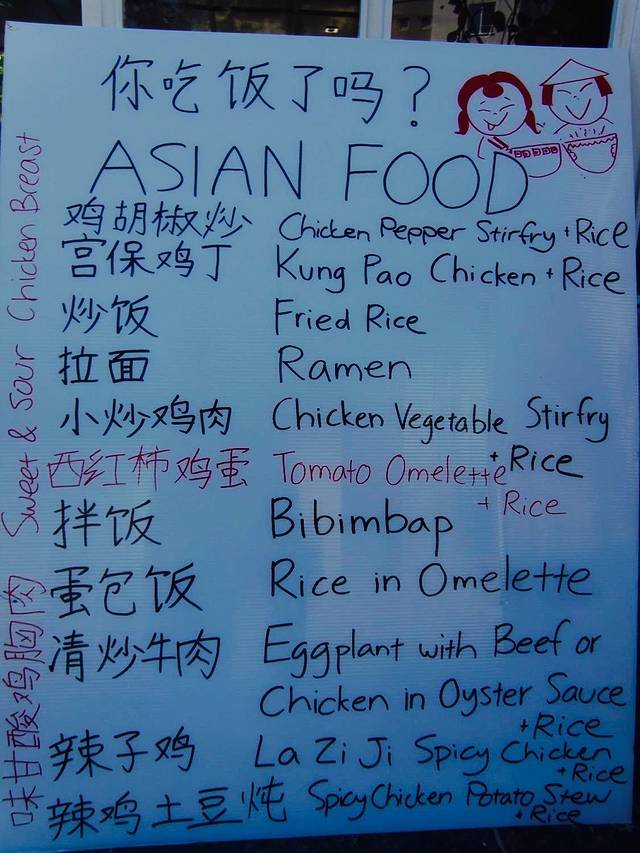 你吃饭了吗？
ASIAN FOOD
鸡胡椒炒 Chicken Pepper Stirfry + Rice
宫保鸡丁 Kung Pao Chicken + Rice
炒饭 Fried Rice
拉面 Ramen
小炒鸡肉 Chicken Vegetable Stirfry
+ Rice
西红柿鸡蛋 Tomato Omelette
+ Rice
拌饭 Bibimbap
蛋包饭 Rice in Omelette
清炒牛肉 Eggplant with Beef or
Chicken in Oyster Sauce
+ Rice
辣子鸡 La Zi Ji Spicy Chicken
+ Rice
辣鸡土豆炖 Spicy Chicken Potato Stew
+ Rice
味甘酸鸡胸肉 Sweet & Sour Chicken Breast